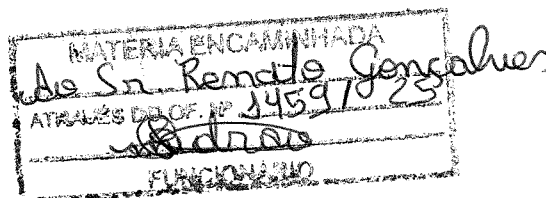 MATÉRIA ENCAMINHADA
Ao Sr. Renato Gonçalves
ATRAVÉS DO OF. Nº 1459/25
FUNCIONÁRIO